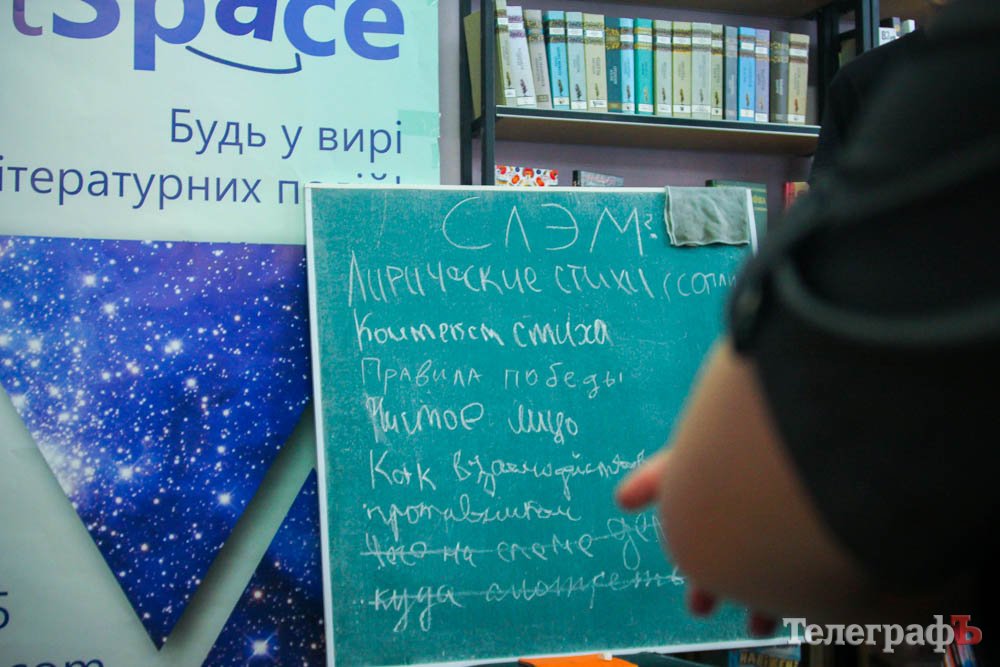 tSpace
Будь у вирі
ітературних подій!
СЛЭМ?
Лирические стихи (сопли
Контекст стиха
Правила победы
лицо
Как взаимодействов
противником
что на слэме де
куда смотреть
5
com
ТелеграфЪ